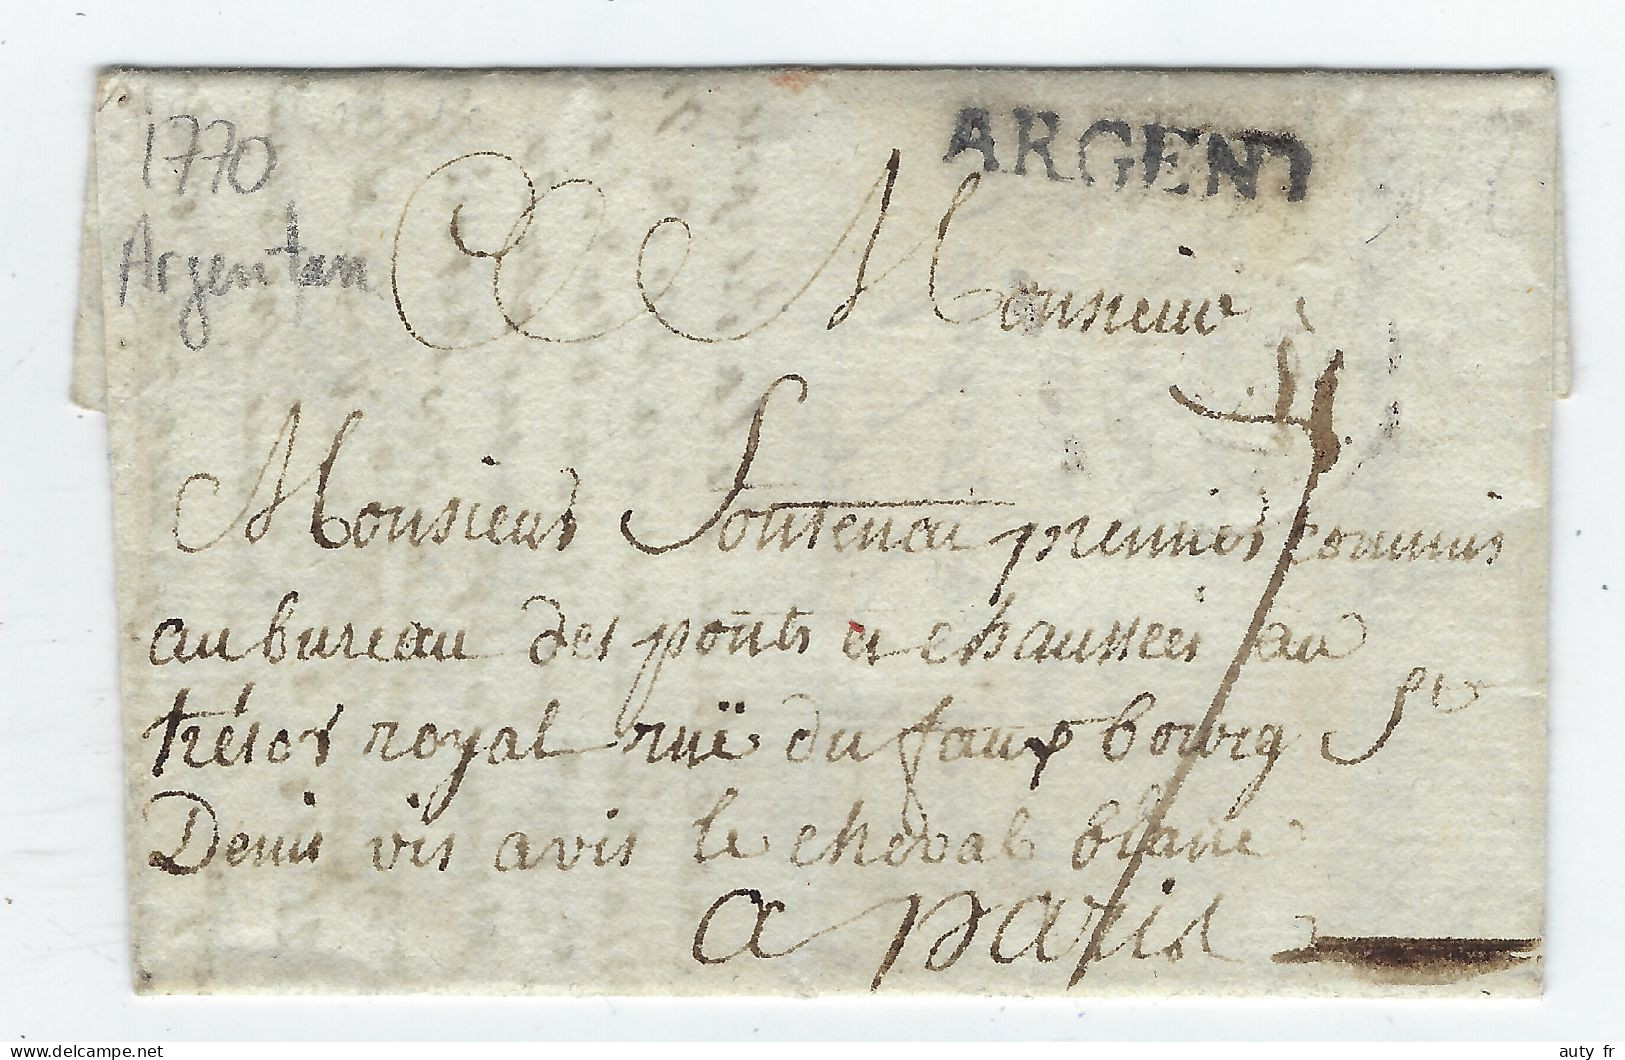 1770
Argentan
ARGENT
Monsieur
Monsieur Soutenai premier commis
au bureau des ponts et chaussées au
trésor royal ruë du faux bourg St
Denis vis avis le cheval blanc
a paris
auty fr